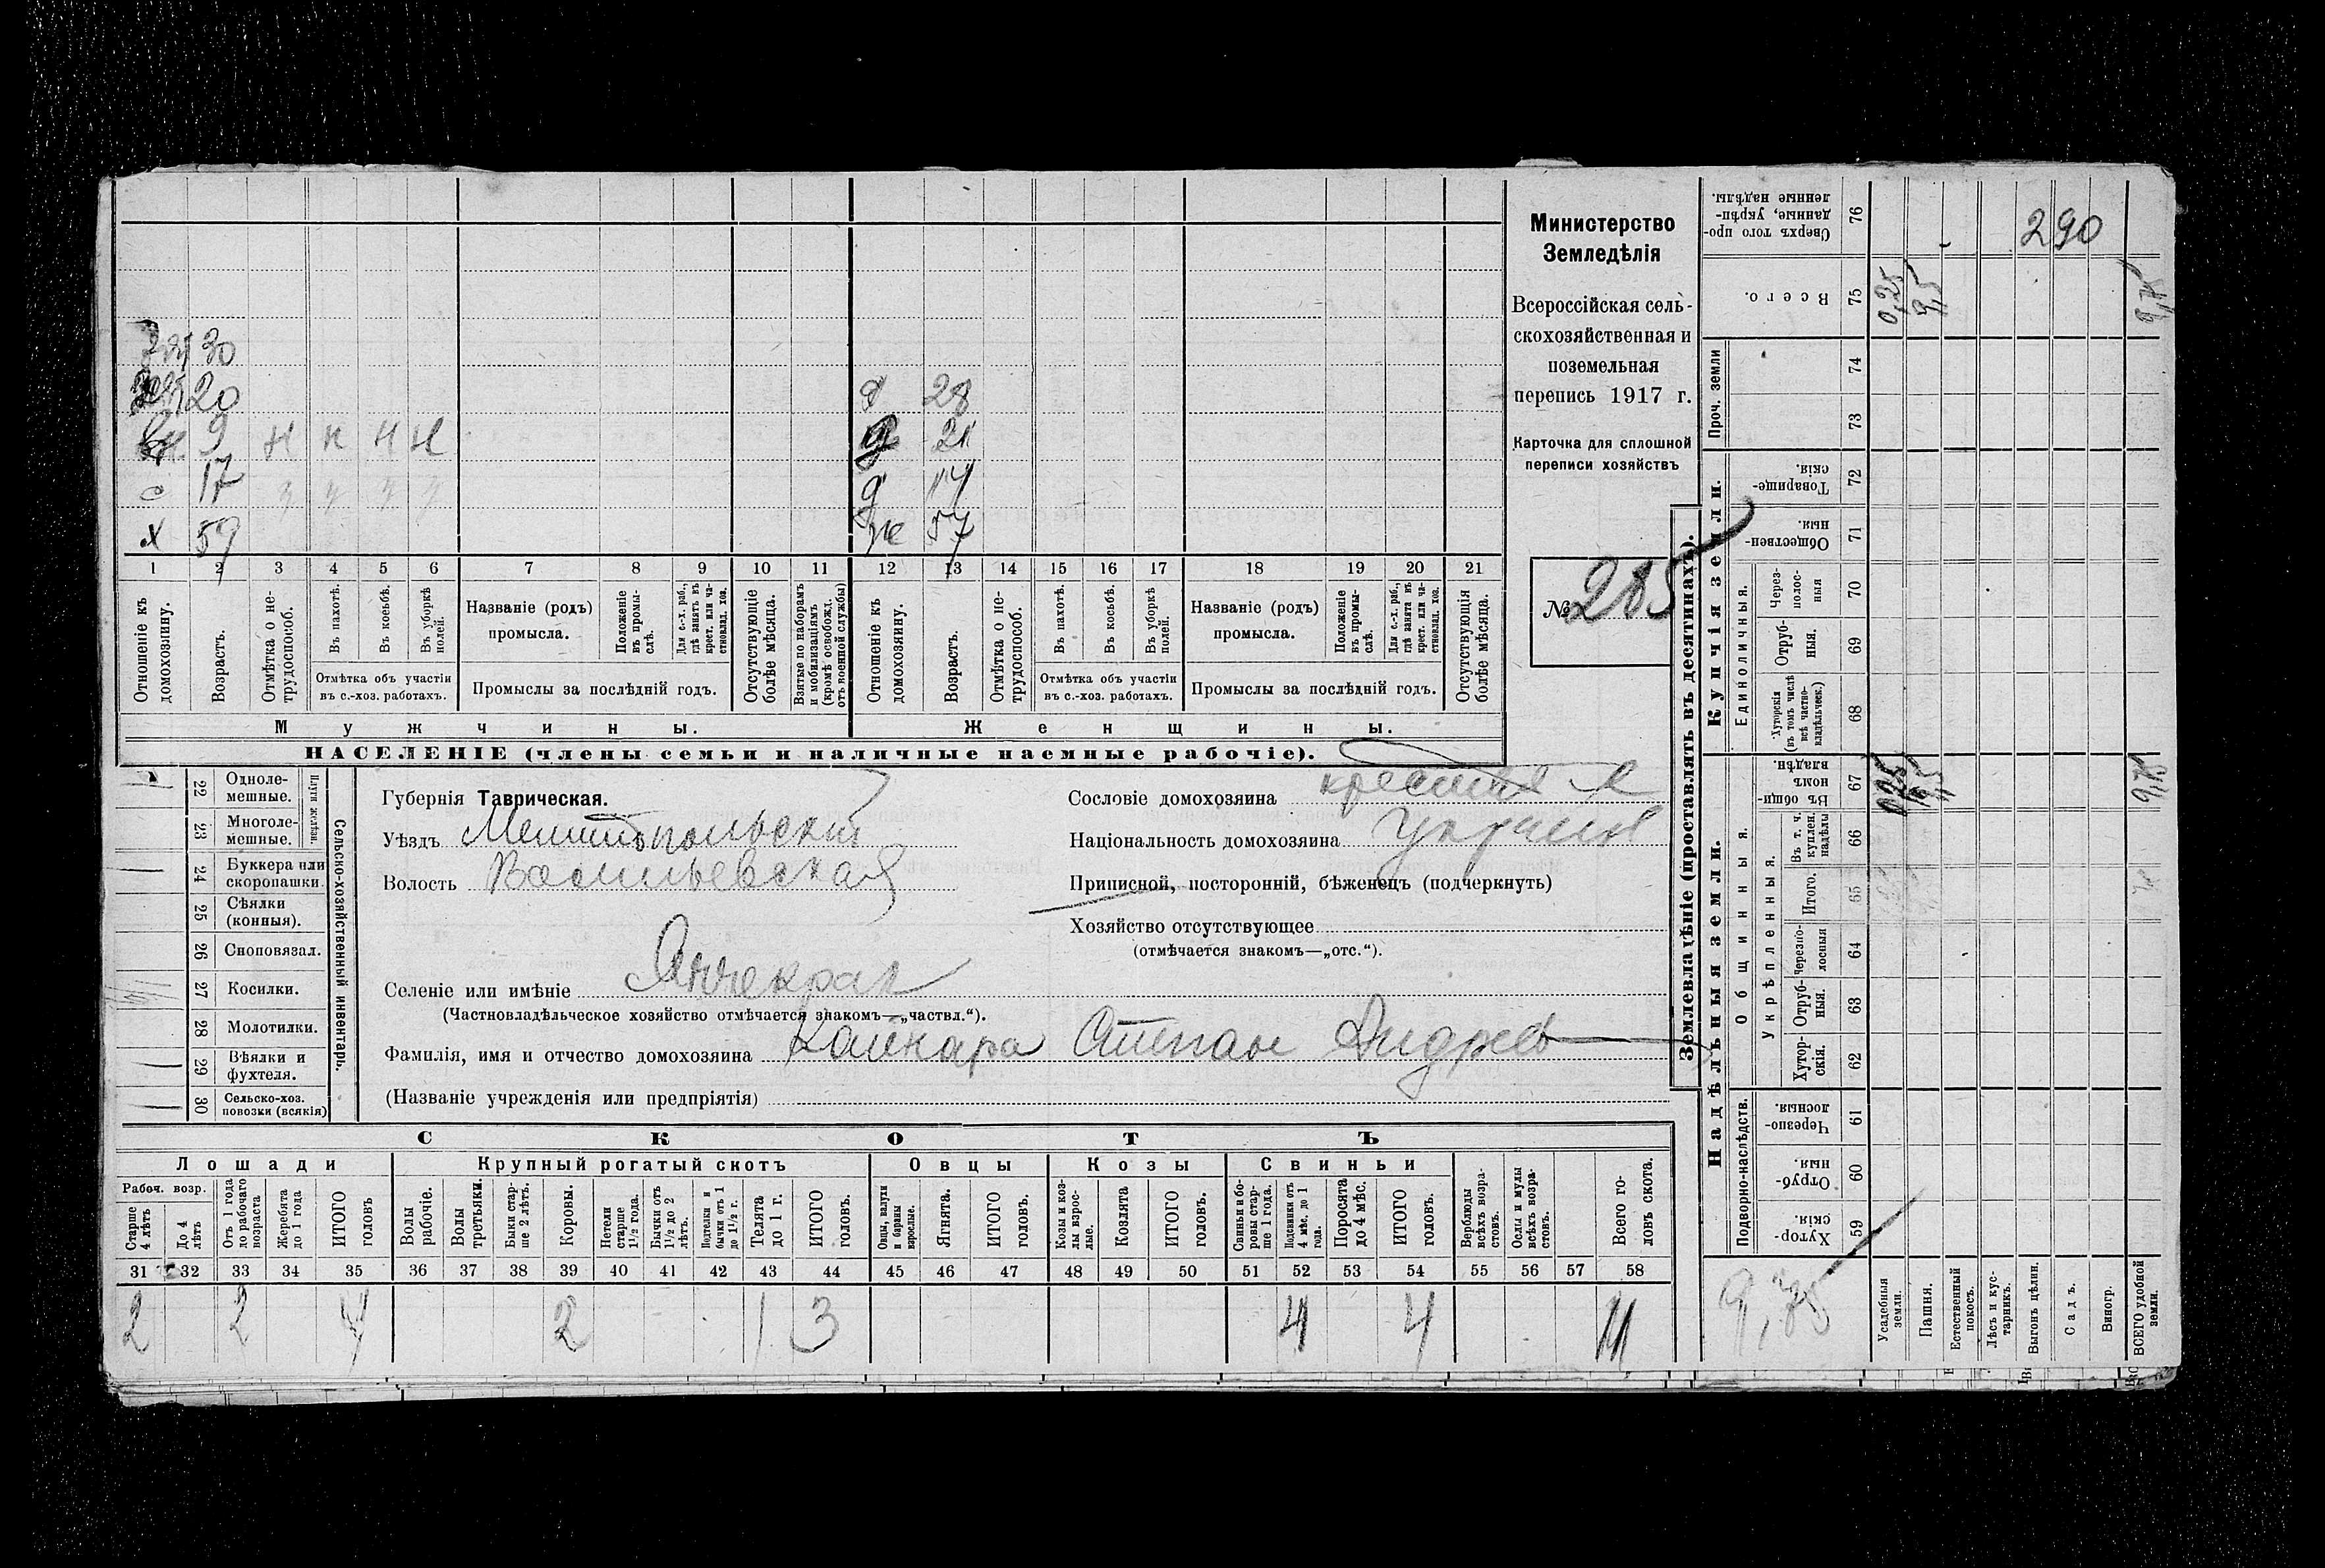 30
20
9 н н н н
17
х 59
д 28
21
д 14
ж 57
1 2 3 4 5 6 7 8 9 10 11 12 13 14 15 16 17 18 19 20 21
Отношеніе къ домохозяину.
Возрастъ.
Отмѣтка о не-
трудоспособ.
Въ пахотѣ.
Въ косьбѣ.
Въ уборкѣ
полей.
Отмѣтка объ участіи
въ с.-хоз. работахъ.
Названіе (родъ)
промысла.
Положеніе
въ промы-
слѣ.
Для с.-х. раб.,
гдѣ занятъ въ
крест. или ча-
стновлад. хоз.
Промыслы за послѣдній годъ.
Отсутствующіе
болѣе мѣсяца.
Взятые по наборамъ
и мобилизаціямъ
(кромѣ освобожд.
отъ военной службы)
Отношеніе къ
домохозяину.
Возрастъ.
Отмѣтка о не-
трудоспособ.
Въ пахотѣ.
Въ косьбѣ.
Въ уборкѣ
полей.
Отмѣтка объ участіи
въ с.-хоз. работахъ.
Названіе (родъ)
промысла.
Положеніе
въ промы-
слѣ.
Для с.-х. раб.,
гдѣ занята въ
крест. или ча-
стновлад. хоз.
Промыслы за послѣдній годъ.
Отсутствующія
болѣе мѣсяца.
Мужчины.
Женщины.
НАСЕЛЕНІЕ (члены семьи и наличные наемные рабочіе).
Министерство
Земледѣлія
Всероссійская сель-
скохозяйственная и
поземельная
перепись 1917 г.
Карточка для сплошной
переписи хозяйствъ
№ 285
22 Одноле-
мешные.
23 Многоле-
мешные.
Плуги желѣзн.
24 Буккера или
скоропашки.
25 Сѣялки
(конныя).
26 Сноповязал.
27 Косилки.
28 Молотилки.
29 Вѣялки и
фухтеля.
30 Сельско-хоз.
повозки (всякія)
Сельско-хозяйственный инвентарь.
Губернія Таврическая.
Уѣздъ Мелитопольскій
Волость Васильевская
Селеніе или имѣніе Янчекрак
(Частновладѣльческое хозяйство отмѣчается знакомъ—„частвл.“).
Фамилія, имя и отчество домохозяина Кайкара Степан Андреев
(Названіе учрежденія или предпріятія)
Сословіе домохозяина
Національность домохозяина украин
Приписной, посторонній, бѣженецъ (подчеркнуть)
Хозяйство отсутствующее
(отмѣчается знакомъ—„отс.“).
СКОТЪ
Лошади
Крупный рогатый скотъ
Овцы
Козы
Свиньи
Рабоч. возр.
Старше
4 лѣтъ
До 4
лѣтъ
Отъ 1 года
до рабочаго
возраста
Жеребята
до 1 года
ИТОГО
головъ
Волы
рабочіе.
Волы
третьяки.
Быки стар-
ше 2 лѣтъ.
Коровы.
Нетели
старше
1½ года.
Бычки отъ
1½ до 2
лѣтъ.
Подтелки и
бычки отъ 1
до 1½ г.
Телята
до 1 г.
ИТОГО
головъ.
Овцы, валухи
и бараны
взрослые.
Ягнята.
ИТОГО
головъ.
Козы и коз-
лы взрос-
лые.
Козлята
ИТОГО
головъ.
Свиньи и бо-
ровы стар-
ше 1 года.
Подсвинки отъ
4 мѣс. до 1
года.
Поросята
до 4 мѣс.
ИТОГО
головъ.
Верблюды
всѣхъ возра-
стовъ.
Ослы и мулы
всѣхъ возра-
стовъ.
Всего го-
ловъ скота.
31 32 33 34 35 36 37 38 39 40 41 42 43 44 45 46 47 48 49 50 51 52 53 54 55 56 57 58
2 2 4 2 1 3 4 4 11
Землевладѣніе (проставлять въ десятинахъ).
Сверхъ того про-
данные, укрѣп-
ленные надѣлы.
76
290
Всего.
75
0,25
9,5
9,75
Проч. земли
74
73
Купчія земли.
Товарище-
скія.
72
Обществен-
ныя.
71
Единоличныя.
Через-
полос-
ныя
70
Отруб-
ныя.
69
Хуторскія
(въ томъ числѣ
всѣ частно-
владѣльческ.)
68
Надѣльныя земли.
Общинныя.
Въ общин-
номъ
владѣн.
67
9,5
9,75
Укрѣпленныя.
Въ т. ч.
куплен.
надѣлы
66
Итого.
65
Черезпо-
лосныя
64
Отруб-
ныя.
63
Хутор-
скія.
62
Подворно-наслѣдств.
Черезпо-
лосныя.
61
Отруб-
ныя.
60
Хутор-
скія.
59
9,75
Усадебныя
земли.
Пашня.
Естественный
покосъ.
Лѣсъ и кус-
тарникъ.
Выгонъ цѣлин.
Садъ.
Виногр.
ВСЕГО удобной
земли.